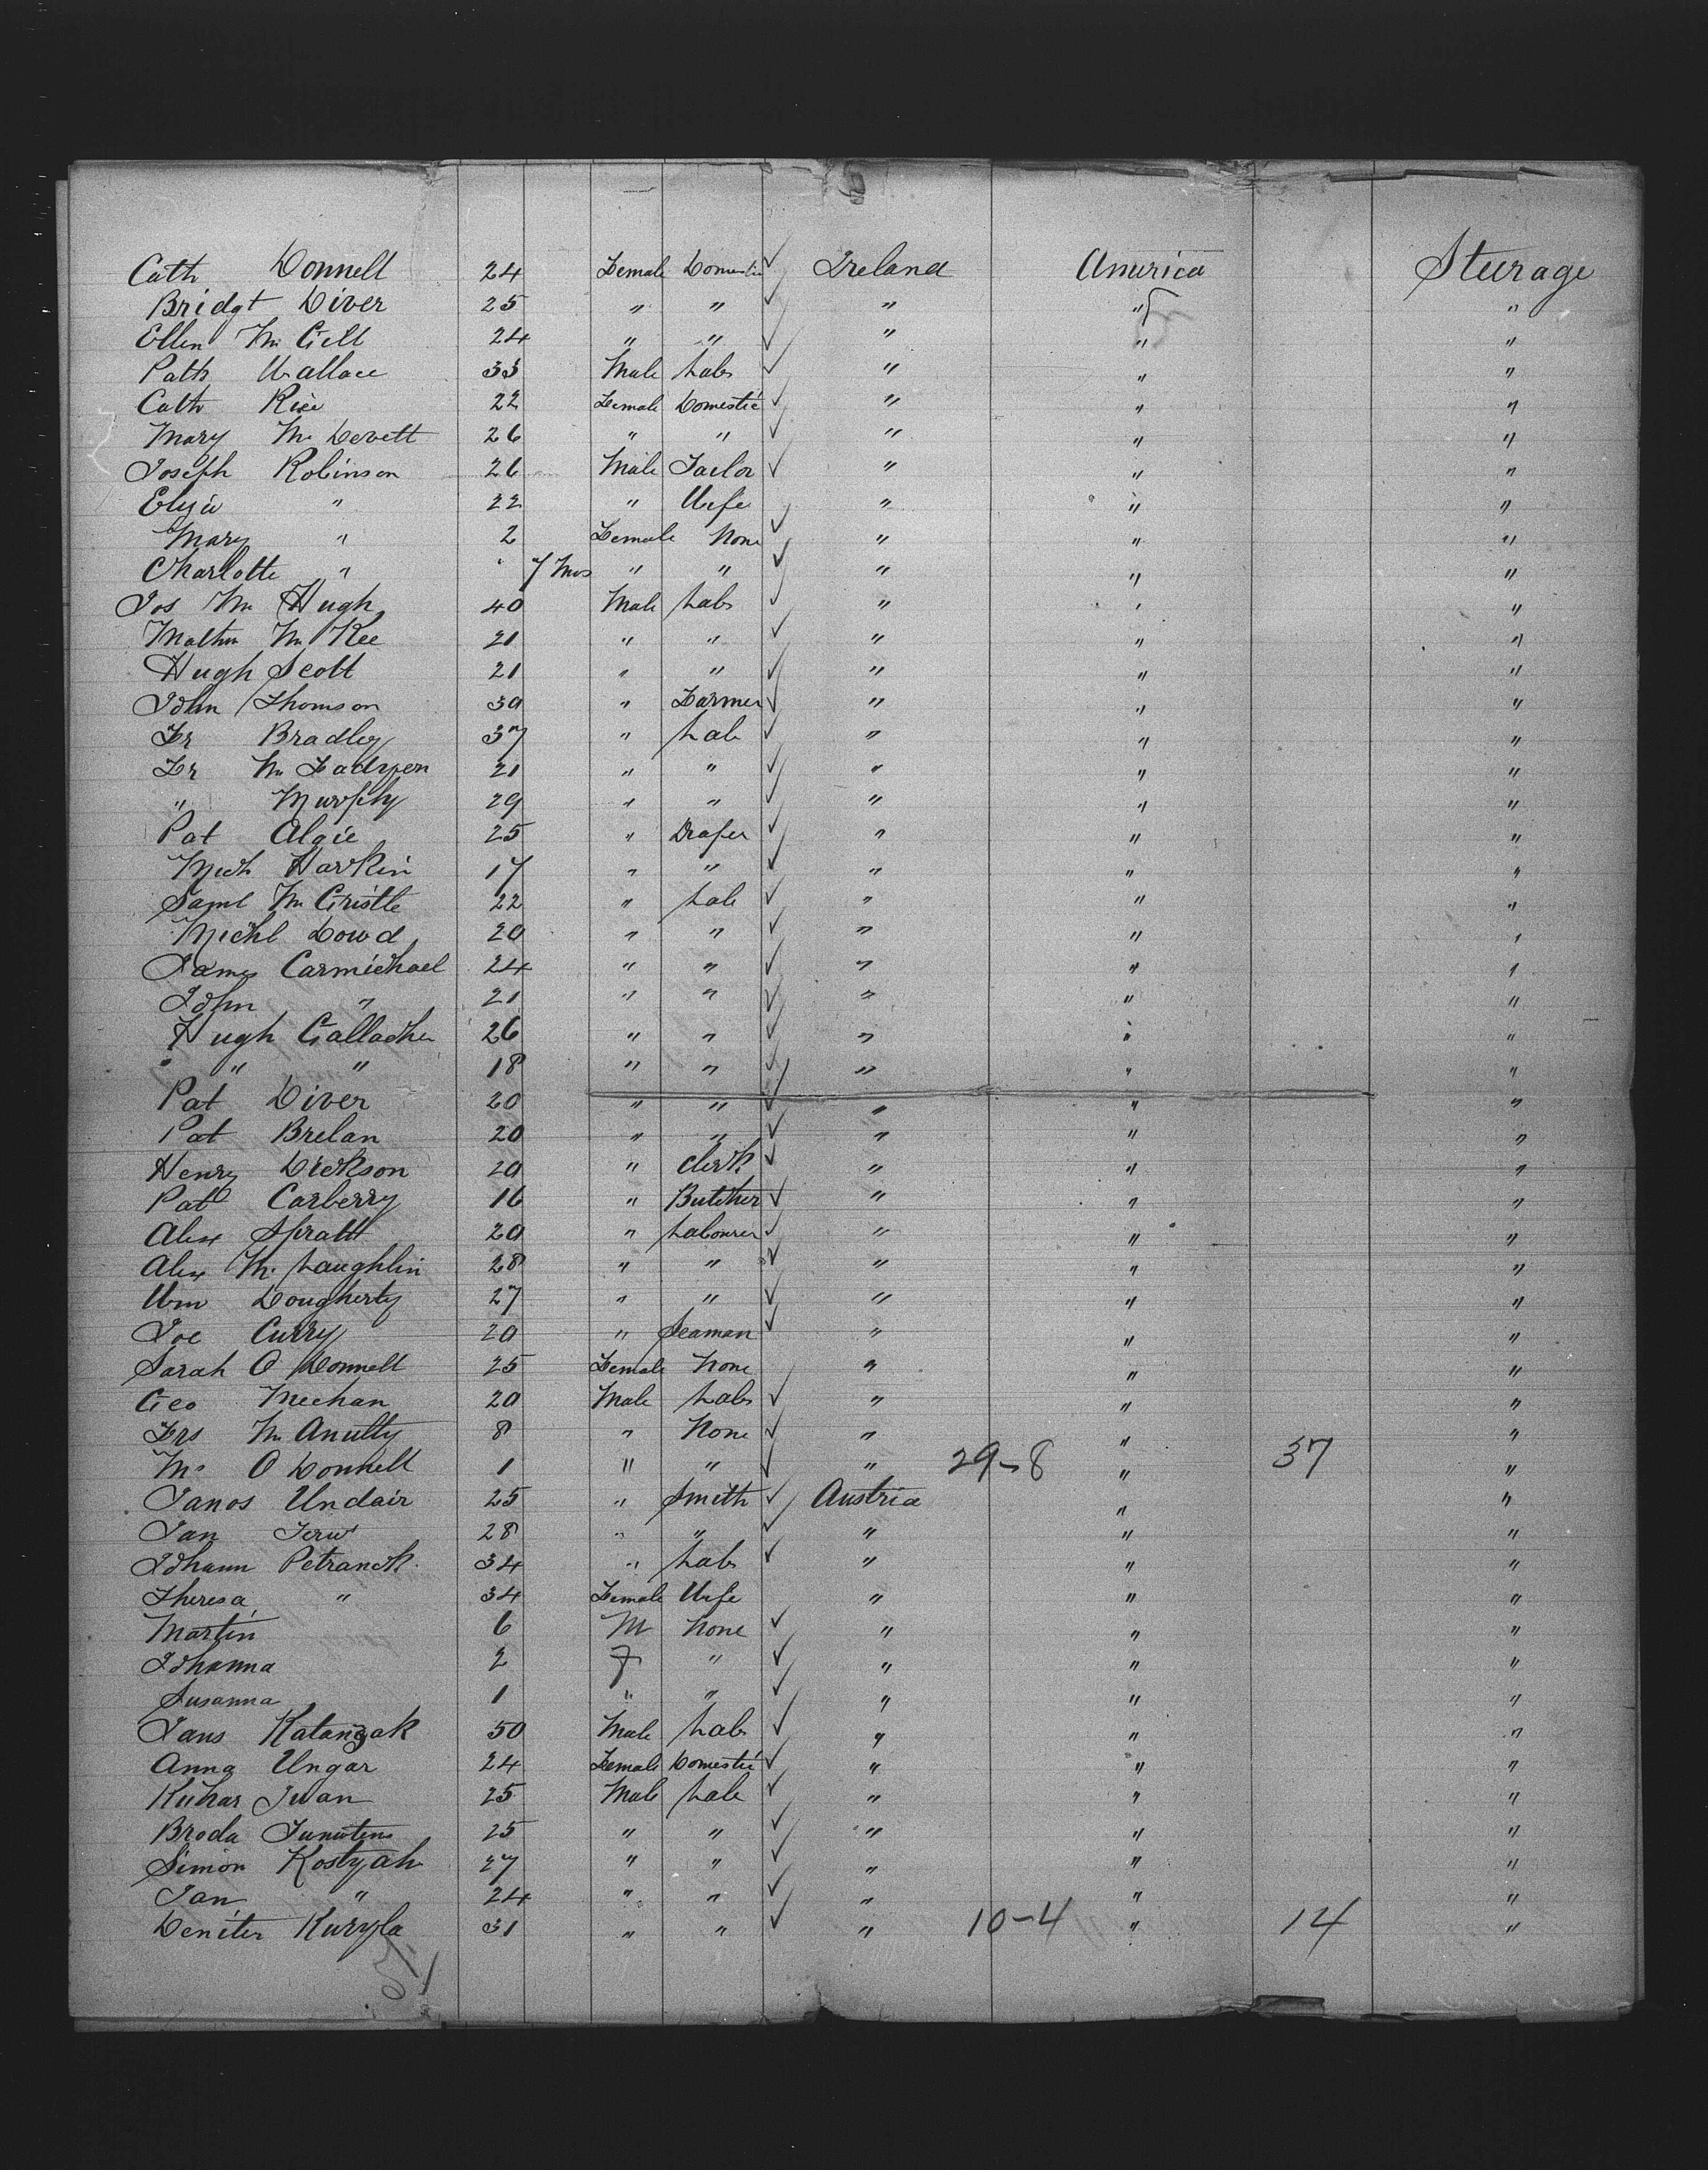 Cath Donnell 24 Female Domestic ✓ Ireland America Steerage
Bridgt Diver 25 " " ✓ " " "
Ellen Mc Gill 24 " " ✓ " " "
Patk Wallace 33 Male Labr ✓ " " "
Cath Rice 22 Female Domestic ✓ " " "
Mary Mc Devett 26 " " ✓ " " "
Joseph Robinson 26 Male Tailor ✓ " " "
Eliza " 22 " Wife " " "
Mary " 2 Female None ✓ " " "
Charlotte " 7 Mos " " ✓ " " "
Jos Mc Hugh 40 Male Labr ✓ " " "
Mathw Mc Kee 21 " " ✓ " " "
Hugh Scott 21 " " ✓ " " "
John Thomson 30 " Farmer ✓ " " "
Fr Bradley 37 " Lab ✓ " " "
Fr Mc Fadyen 21 " " ✓ " " "
" Murphy 29 " " ✓ " " "
Pat Algie 25 " Draper ✓ " " "
Mich Harkin 17 " " ✓ " " "
Saml Mc Gristle 22 " Lab ✓ " " "
Michl Dowd 20 " " ✓ " " "
James Carmichael 24 " " ✓ " " "
John " 21 " " ✓ " " "
Hugh Gallacher 26 " " ✓ " " "
" " " 18 " " ✓ " " "
Pat Diver 20 " " ✓ " " "
Pat Brelan 20 " " ✓ " " "
Henry Dickson 20 " Clerk ✓ " " "
Pat Carberry 16 " Butcher ✓ " " "
Alex Spratt 20 " Labourer ✓ " " "
Alex Mc Laughlin 28 " " ✓ " " "
Wm Dougherty 27 " " ✓ " " "
Joe Curry 20 " Seaman ✓ " " "
Sarah O Donnell 25 Female None " " "
Geo Meehan 20 Male Labr ✓ " " "
Frs Mc Anulty 8 " None ✓ " " "
O Donnell 1 " " ✓ " 29-8 " 37 "
Janos Undair 25 " Smith ✓ Austria " "
Jan 28 " " ✓ " " "
Johann Petranck 34 " Labr ✓ " " "
Theresa " 34 Female Wife " " "
Martin 6 M None ✓ " " "
Johanna 2 F " ✓ " " "
Susanna 1 " " ✓ " " "
Jans Katanzak 50 Male Labr ✓ " " "
Anna Ungar 24 Female Domestic ✓ " " "
Kuhar Iwan 25 Male Lab ✓ " " "
Broda 25 " " ✓ " " "
Simon Kostyah 27 " " ✓ " " "
Jan " 24 " " ✓ " " "
Demiter Kuryla 31 " " ✓ " 10-4 " 14 "
51